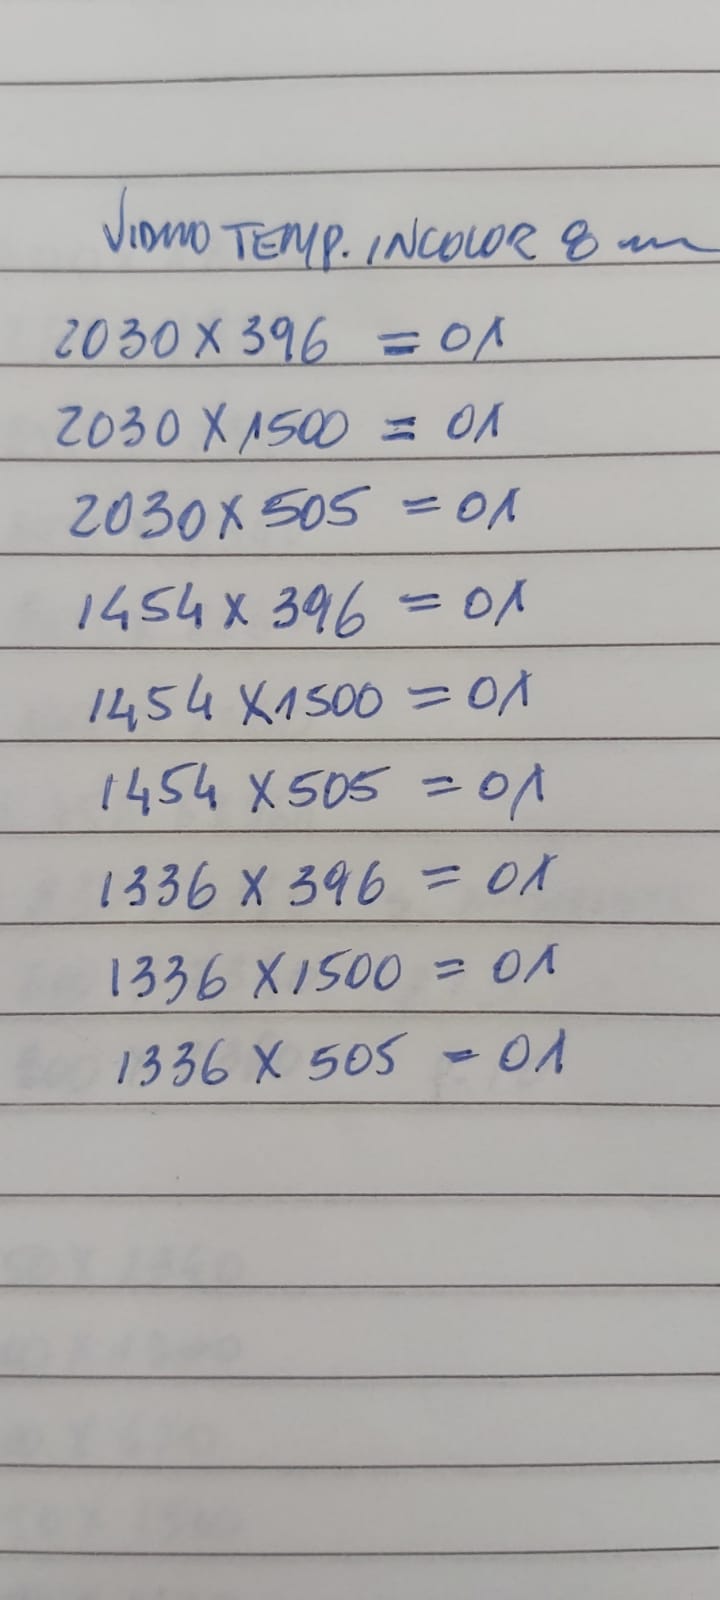 VIDRO TEMP. INCOLOR 8 mm
2030 X 396 = 01
2030 X 1500 = 01
2030 X 505 = 01
1454 X 396 = 01
1454 X 1500 = 01
1454 X 505 = 01
1336 X 396 = 01
1336 X 1500 = 01
1336 X 505 = 01